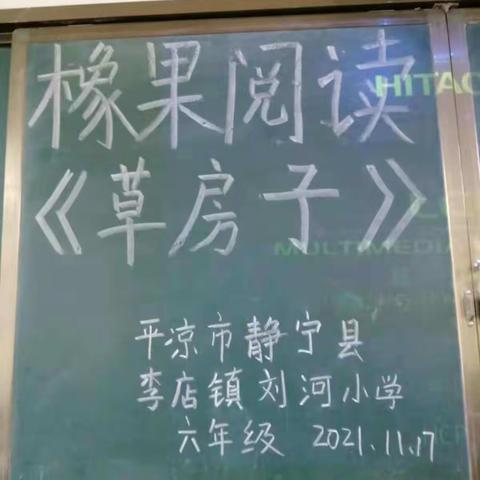 橡果阅读
《草房子》
平凉市静宁县
李店镇刘河小学
六年级 2021.11.17
HITAC
MULTIMEDIA